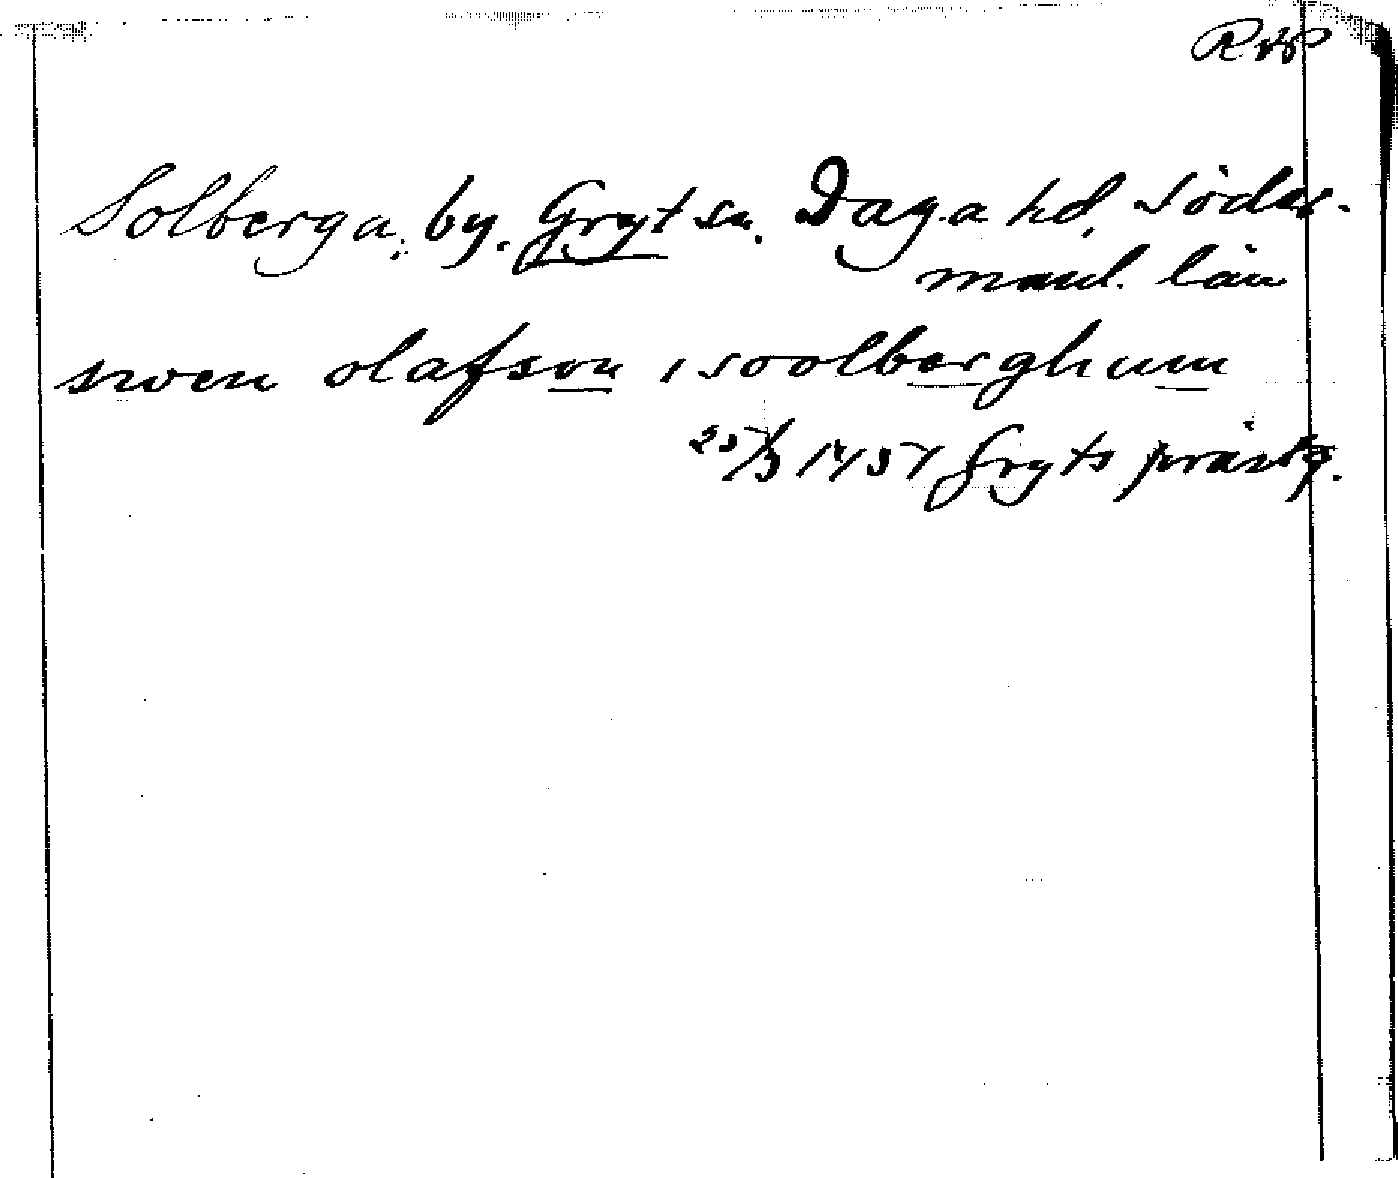 RAP
Solberga, by. Gryt sn. Daga hd, Söder-
manl. län
swen olafson i soolberghum
25/3 1451 Gryts prästg.